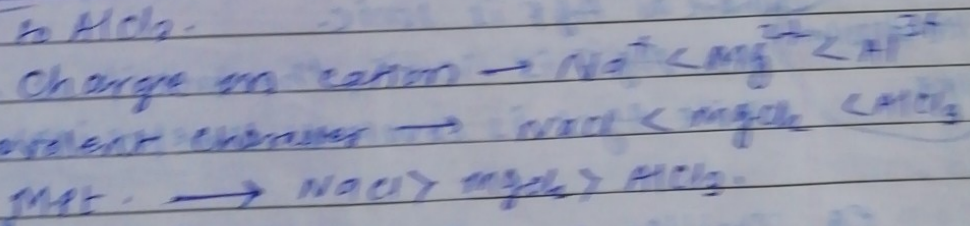 to AlCl₃.
Charge on cation → Na⁺ < Mg²⁺ < Al³⁺
character → NaCl < MgCl₂ < AlCl₃
M.Pt. → NaCl > MgCl₂ > AlCl₃.